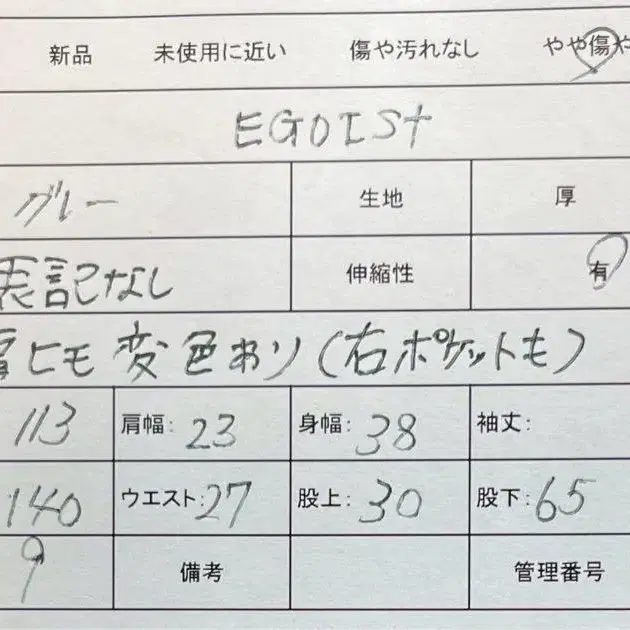 新品 未使用に近い 傷や汚れなし やや傷や
EGOIST
グレー 生地 厚
表記なし 伸縮性 有
肩ヒモ変色あり(右ポケットも)
113 肩幅: 23 身幅: 38 袖丈:
140 ウエスト:27 股上: 30 股下: 65
9 備考 管理番号